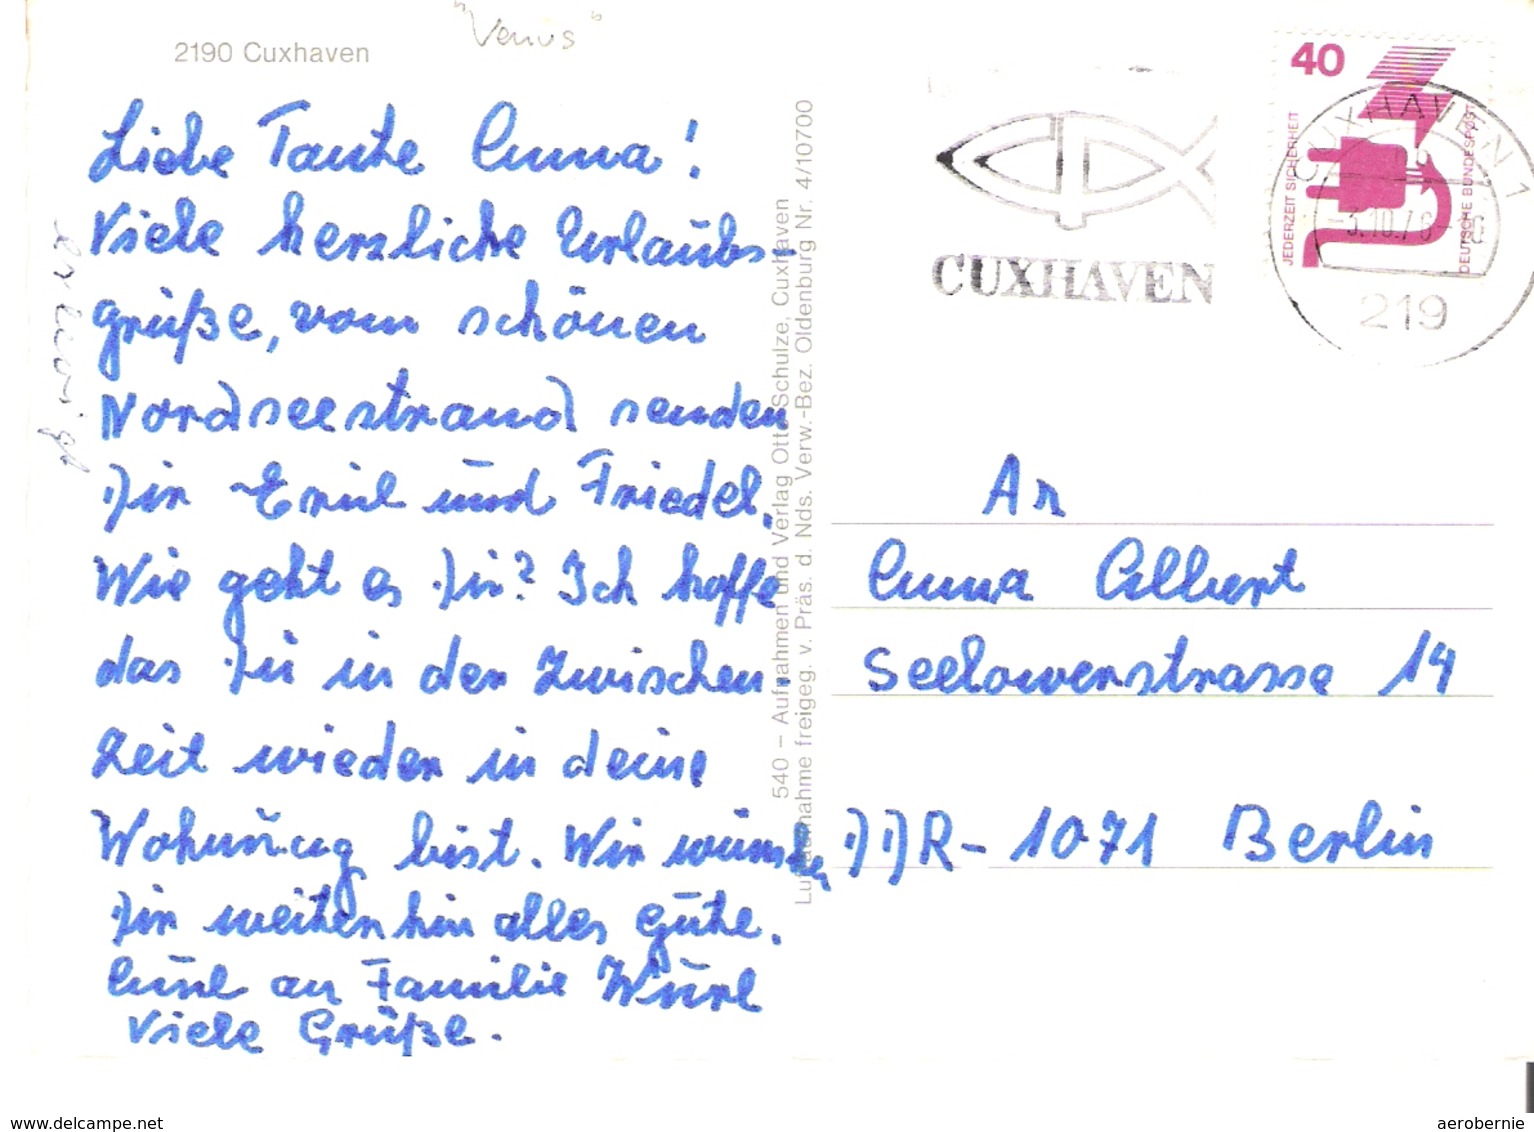 2190 Cuxhaven
"Venus"
Liebe Tante Anna!
Viele herzliche Urlaubs-
grüße, vom schönen
Nordseestrand senden
Dir Erich und Friedel.
Wie geht es Dir? Ich hoffe
das Du in der Zwischen
Zeit wieder in deine
Wohnung bist. Wir wünschen
Dir weiterhin alles Gute.
Auch an Familie
Viele Grüße.
erledigt
540 – Aufnahmen und Verlag Otto Schulze, Cuxhaven
Luftaufnahme freigeg. v. Präs. d. Nds. Verw.-Bez. Oldenburg Nr. 4/10700
CUXHAVEN
40
JEDERZEIT SICHERHEIT
DEUTSCHE BUNDESPOST
CUXHAVEN 1
-3.10.76-
219
An
Anna Albert
Seelowerstrasse 14
DDR-1071 Berlin
delcampe.net
aerobernie